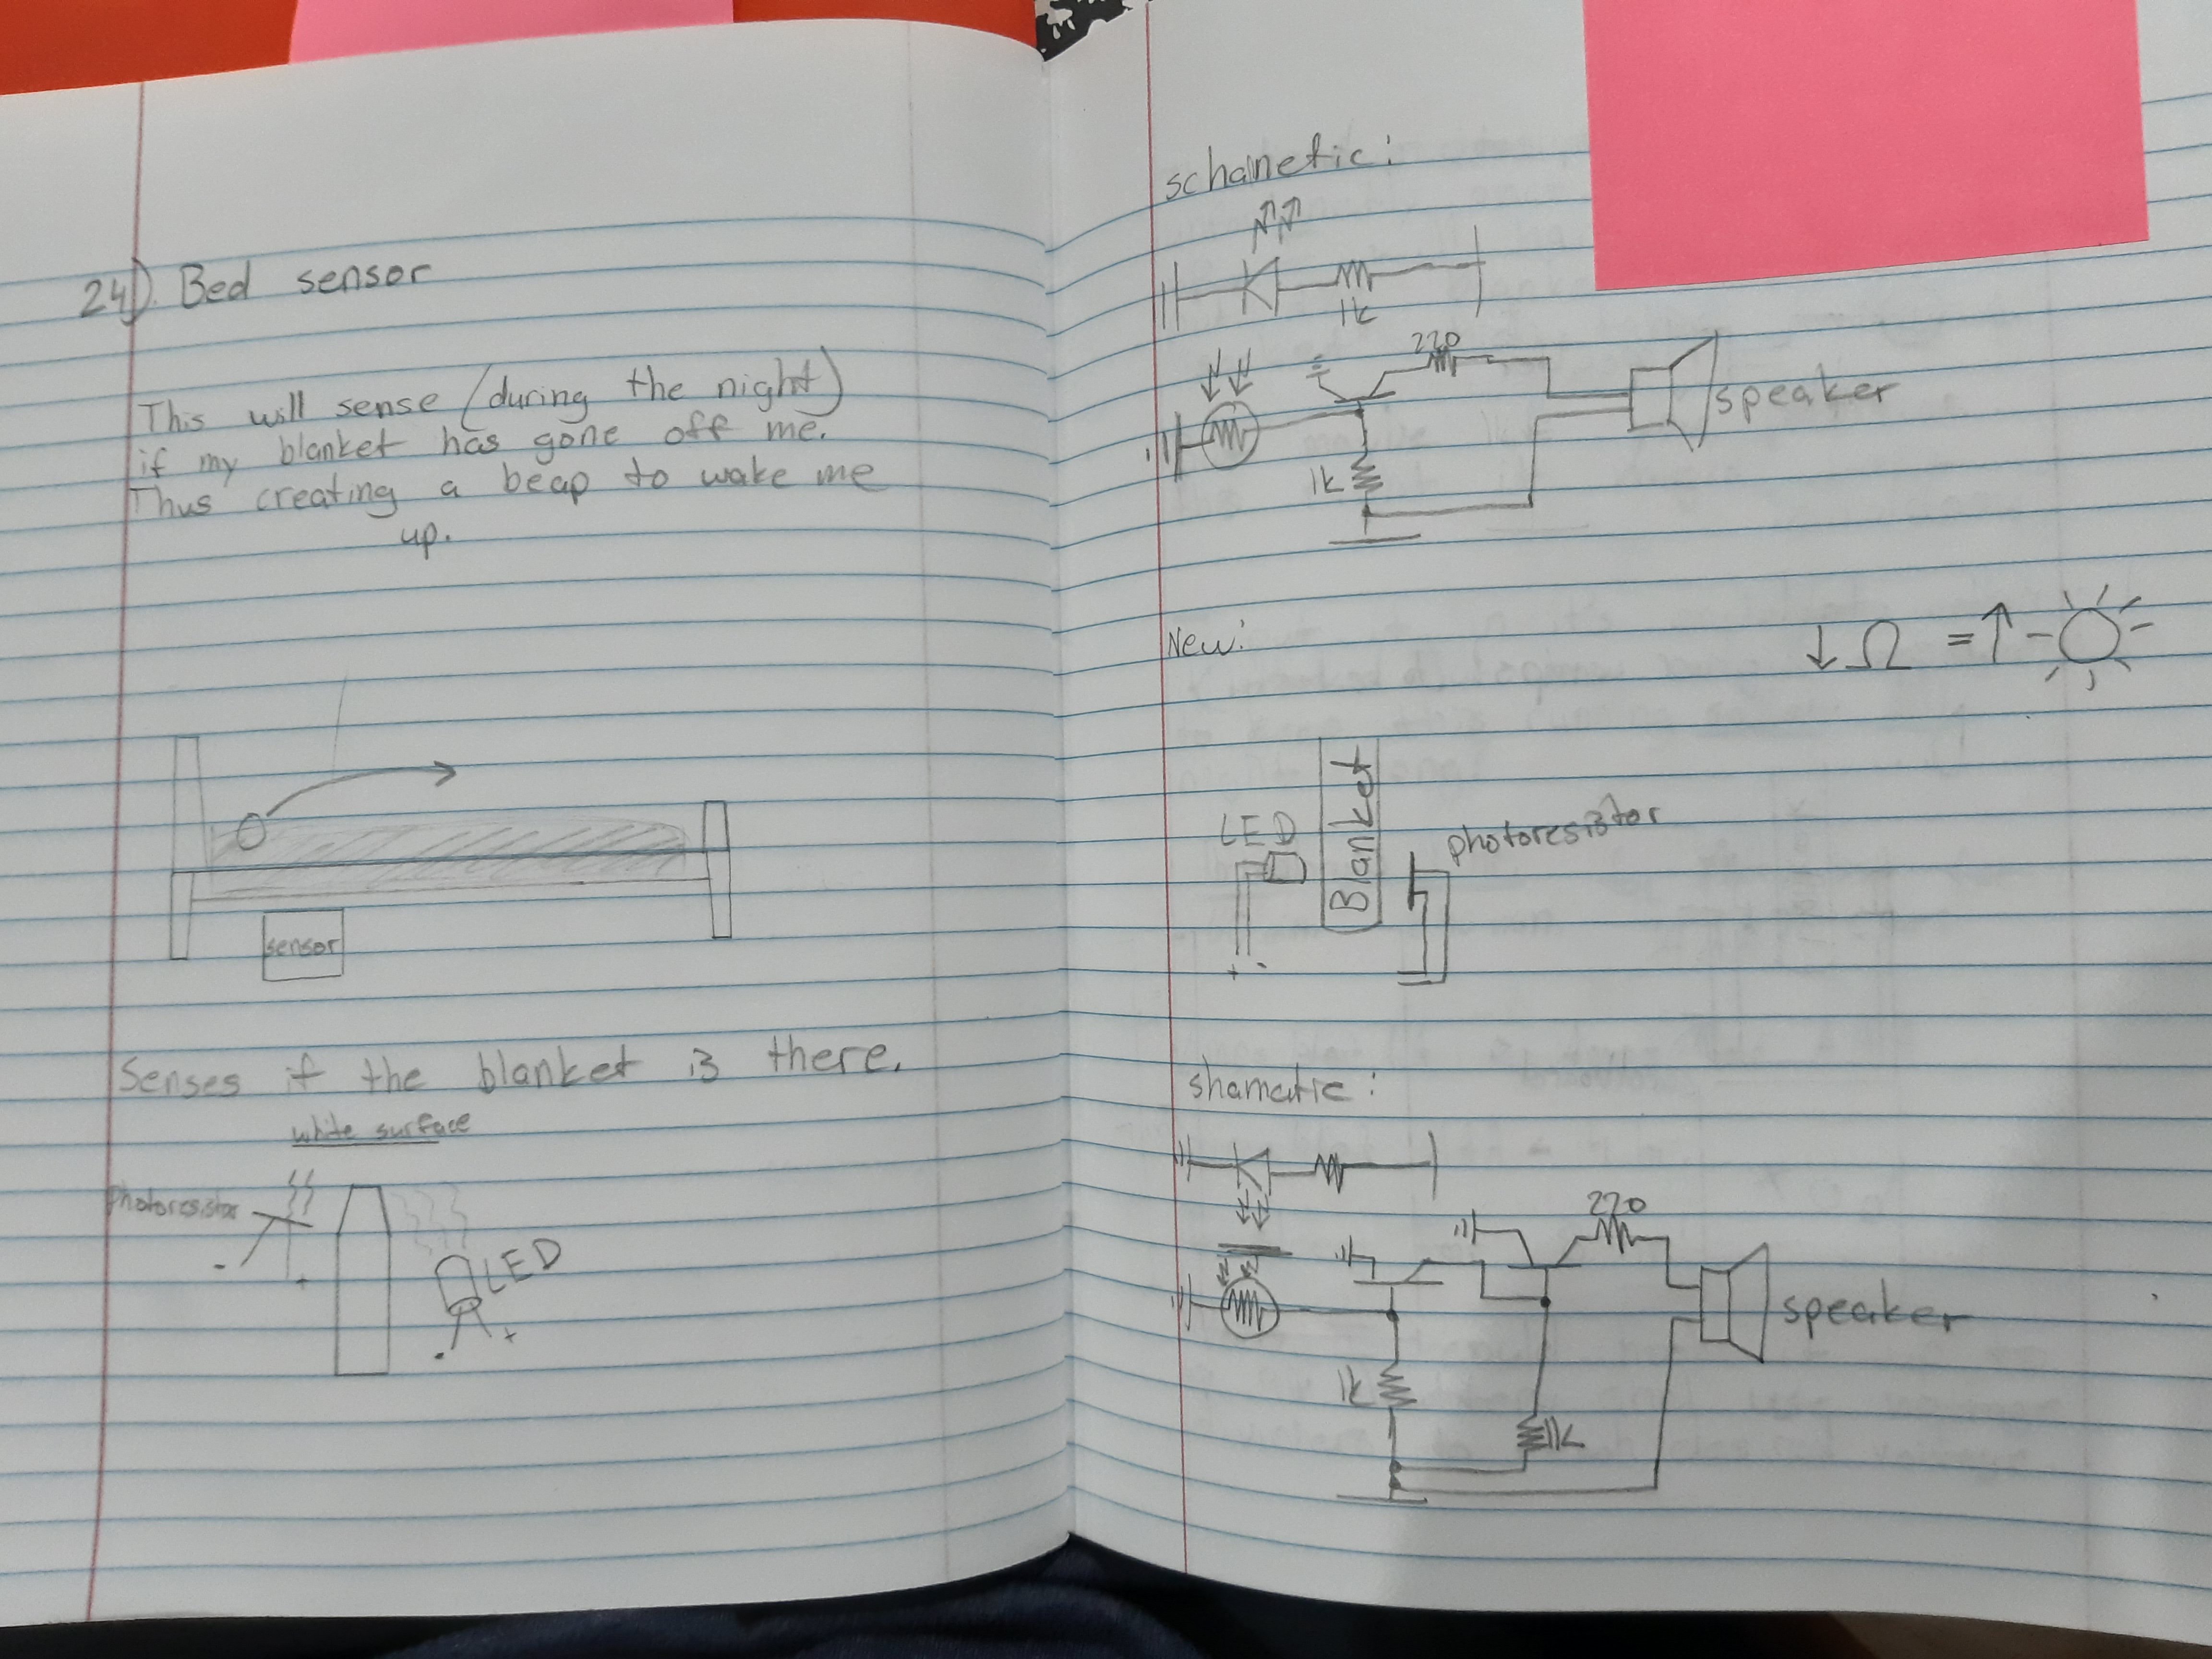 24). Bed sensor
This will sense (during the night)
if my blanket has gone off me.
Thus creating a beap to wake me
up.
sensor
Senses if the blanket is there.
white surface
Photoresistor
-
+
LED
-
+
schametic:
1k
220
speaker
1k
New:
↓ Ω = ↑
LED
Blanket
photoresistor
+ -
shamatic:
220
speaker
1k
1k